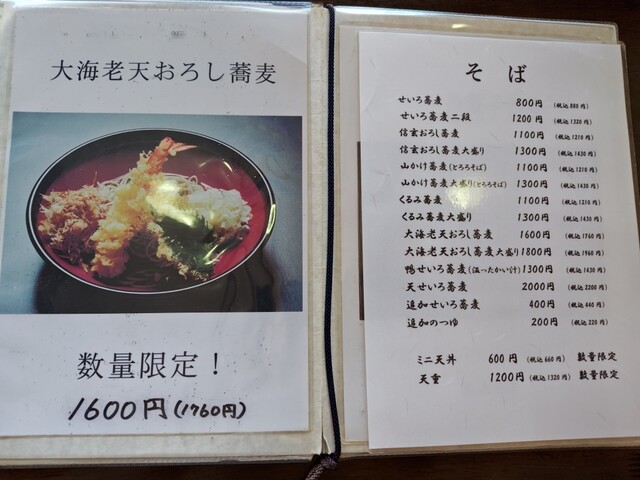 大海老天おろし蕎麦
数量限定！
1600円(1760円)
そば
せいろ蕎麦 800円 (税込 880円)
せいろ蕎麦二段 1200円 (税込 1320円)
信玄おろし蕎麦 1100円 (税込 1210円)
信玄おろし蕎麦大盛り 1300円 (税込 1430円)
山かけ蕎麦(とろろそば) 1100円 (税込 1210円)
山かけ蕎麦大盛り(とろろそば) 1300円 (税込 1430円)
くるみ蕎麦 1100円 (税込 1210円)
くるみ蕎麦大盛り 1300円 (税込 1430円)
大海老天おろし蕎麦 1600円 (税込 1760円)
大海老天おろし蕎麦大盛り 1800円 (税込 1980円)
鴨せいろ蕎麦(温ったかい汁) 1300円 (税込 1430円)
天せいろ蕎麦 2000円 (税込 2200円)
追加せいろ蕎麦 400円 (税込 440円)
追加のつゆ 200円 (税込 220円)
ミニ天丼 600円 (税込 660円) 数量限定
天重 1200円 (税込 1320円) 数量限定